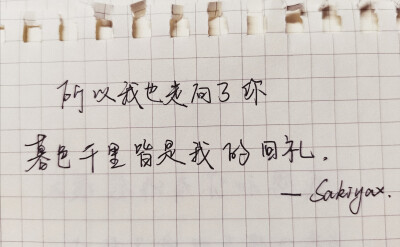 所以我也走向了你
暮色千里皆是我的回礼.
— Sakiyax.